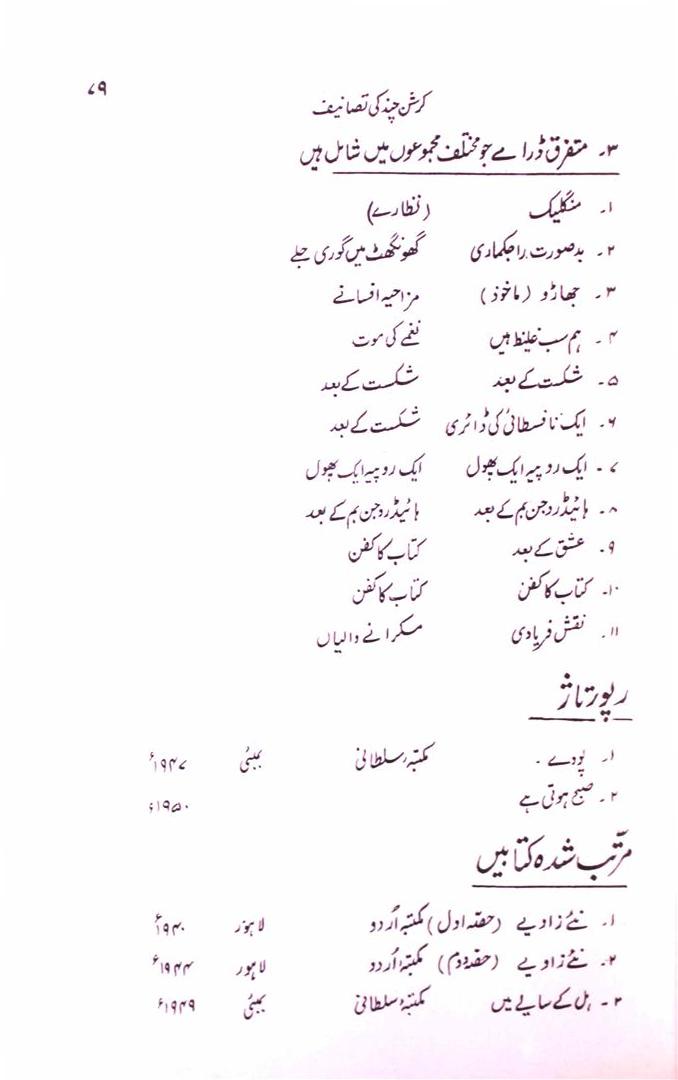 ۷۹
کرشن چند کی تصانیف
۳۔ متفرق ڈرامے جو مختلف مجموعوں میں شامل ہیں
۱۔ منگلیک (نظارے)
۲۔ بدصورت راجکماری گھونگھٹ میں گوری جلے
۳۔ جھاڑو (ماخوذ) مزاحیہ افسانے
۴۔ ہم سب غلیظ ہیں نغمے کی موت
۵۔ شکست کے بعد شکست کے بعد
۶۔ ایک نافسطائی کی ڈائری شکست کے بعد
۷۔ ایک روپیہ ایک پھول ایک روپیہ ایک پھول
۸۔ ہائیڈروجن بم کے بعد ہائیڈروجن بم کے بعد
۹۔ عشق کے بعد کتاب کا کفن
۱۰۔ کتاب کا کفن کتاب کا کفن
۱۱۔ نقش فریادی مسکرانے والیاں
رپورتاژ
۱۔ پودے۔ مکتبہ سلطانی بمبئی ۱۹۴۷ء
۲۔ صبح ہوتی ہے ۱۹۵۰ء
مرتّب شدہ کتابیں
۱۔ نئے زاویے (حصّہ اول) مکتبہ اُردو لاہور ۱۹۴۰ء
۲۔ نئے زاویے (حصہ دوم) مکتبۂ اُردو لاہور ۱۹۴۴ء
۳۔ ہل کے سایے میں مکتبۂ سلطانی بمبئی ۱۹۴۹ء